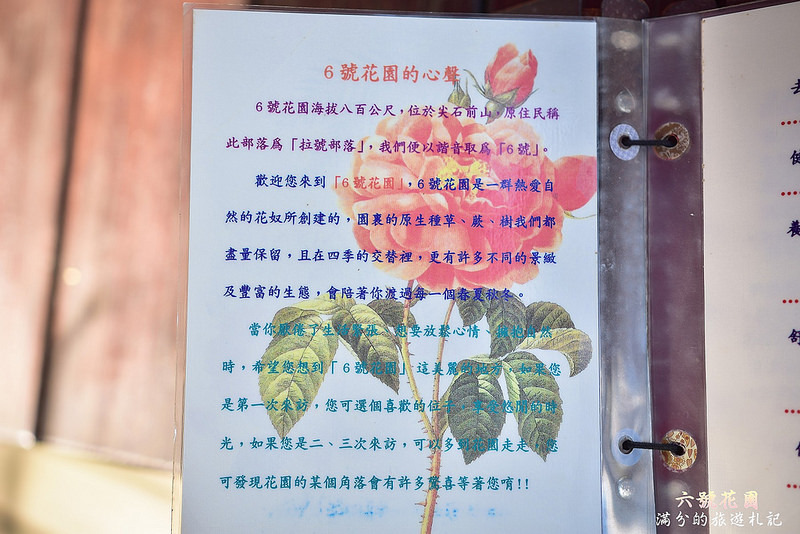 6號花園的心聲
6號花園海拔八百公尺,位於尖石前山,原住民稱
此部落為「拉號部落」,我們便以諧音取為「6號」。
歡迎您來到「6號花園」,6號花園是一群熱愛自
然的花奴所創建的,園裏的原生種草、蕨、樹我們都
盡量保留,且在四季的交替裡,更有許多不同的景緻
及豐富的生態,會陪著你渡過每一個春夏秋冬。
當你厭倦了生活緊張、想要放鬆心情、擁抱自然
時,希望您想到「6號花園」這美麗的地方,如果您
是第一次來訪,您可選個喜歡的位子,享受悠閒的時
光,如果您是二、三次來訪,可以多到花園走走,您
可發現花園的某個角落會有許多驚喜等著您唷!!
六號花園
滿分的旅遊札記